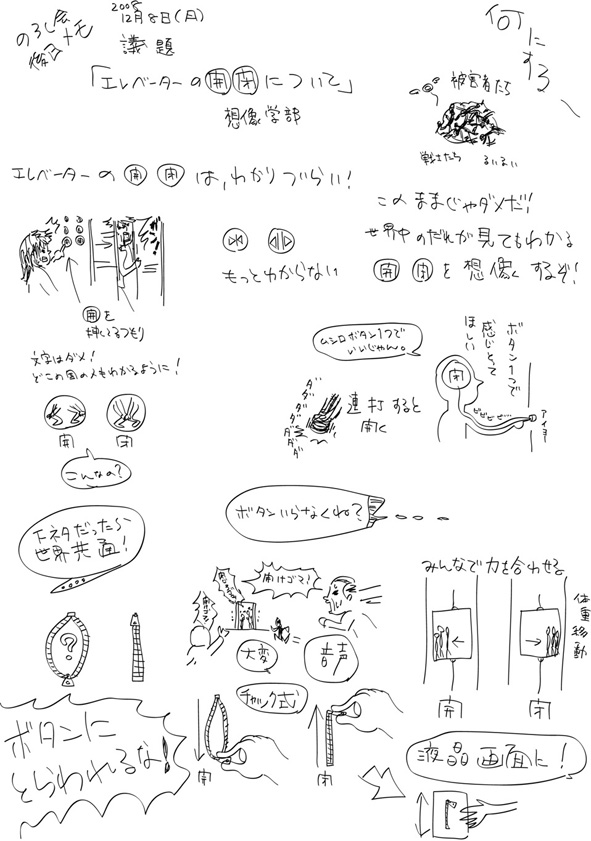 2008
12月8日(月)
議題
「エレベーターの開閉について」
想像学部
何にする
被害者たち
戦士たち
るいるい
エレベーターの開閉は、わかりづらい!
もっとわからない
このままじゃダメだ!
世界中のだれが見てもわかる
開閉を想像するぞ!
開を
押してるつもり
文字はダメ!
どこの国の人もわかるように!
開
閉
こんなの?
ムシロボタン1つで
いいじゃん。
ダダダダダダ
連打すると
開く
ボタン1つで
感じとって
ほしい
閉
ピピピピ…
アイヨー
下ネタだったら
世界共通!
ボタンいらなくね?
開けゴマ!
大変
音声
みんなで力を合わせる
体重移動
開
閉
?
チャック式
開
閉
ボタンに
とらわれるな!
液晶画面に!